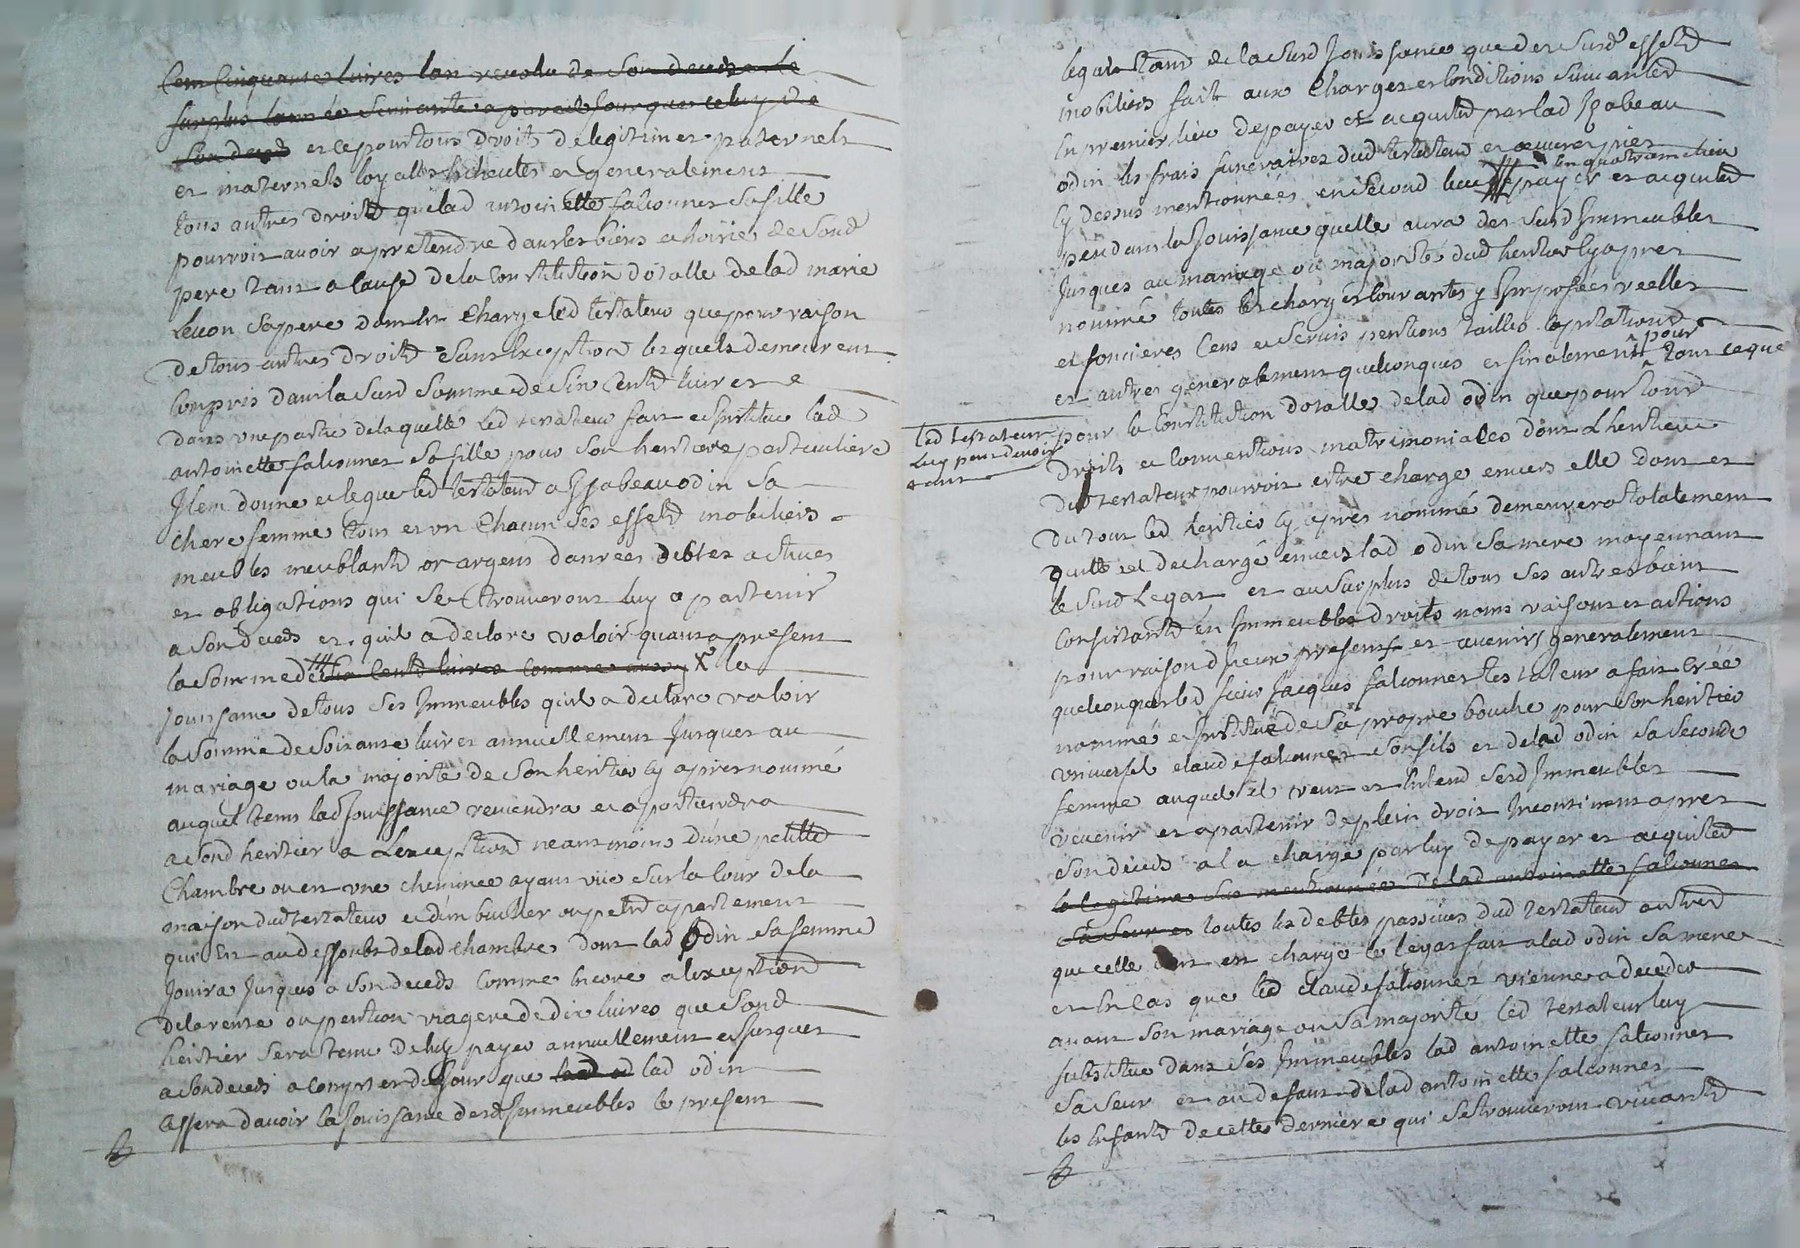 Cent Cinquante livres lan revolu de Son deceds et le
Surplus lannée Suivante a pareil jour que celuy de
Son deceds et ce pour tous droits de legitimes paternels
et maternels loyalles écheutes et generalement
tous autres droitz que lad antoinette falconnet Sa fille
pourroit avoir a pretendre dans les biens et hoirie de Sond
pere tant a cause de la constitution dotalle de lad marie
Levon Sa mere dont est chargé led testateur que pour raison
de tous autres droitz Sans exception lesquels demeurent
compris dans la Susd Somme de Six Centz livres
dans une partie de laquelle led testateur fait et Institue lad
antoinette falconnet Sa fille pour Son heritiere particuliere
Item donne et legue led testateur a Isabeau odin Sa
chere femme tous et un chacun Ses effetz mobiliers
meubles meublantz or argent danrées debtes actives
et obligations qui Se trouveront luy apartenir
a Son deceds et quil a declaré valoir quant a present
la Somme de Six Centz livres comme aussy X la
jouissance de tous Ses Immeubles quil a declaré valoir
la Somme de Soixante livres annuellement Jusques au
mariage ou la majorité de Son heritier cy apres nommé
auquel tems lad Jouissance reviendra et apartiendra
a Sond heritier a Lexception neantmoins dune petitte
Chambre ou est une cheminée ayant vüe Sur la Cour de la
maison dud testateur et dun bucher ou petit apartement
qui est au dessoubs de lad chambre dont lad odin Sa femme
Jouira Jusques a Son deceds comme encore a lexception
de la rente ou pention viagere de dix livres que Sond
heritier Sera tenu de luy payer annuellement et Jusques
a Son deceds a compter du Jour que lad od lad odin
cessera davoir la Jouissance desd Immeubles le present
legat tant de la Susd Jouissance que des Susd effetz
mobiliers fait aux charges et conditions Suivantes
En premier lieu de payer et acquitter par lad Isabeau
odin les frais funeraires dud testateur et œuvres pies
en quatrieme lieu
cy dessus mentionnées en Second lieu payer et acquitter
pendant la Jouissance quelle aura des Susd Immeubles
Jusques au mariage ou majorité dud heritier cy apres
nommé toutes les charges courantes y Imposées reelles
et foncieres Cens et Servis pentions tailles capitations
pour
et autres generalement quelconques et finalement tout ce que
led testateur
luy peut devoir
tant
pour la Constitution dotalle de lad odin que pour tous
droits et conventions matrimoniales dont Lheritier
dud testateur pourroit estre chargé envers elle dont et
du tout led heritier cy apres nommé demeurera totalement
quitte et dechargé envers lad odin Sa mere moyennant
le Susd Legat et au Surplus de tous Ses autres biens
consistantz en Immeubles droits noms raisons et actions
pour raison diceux presents et avenirs generalement
quelconques led Sieur Jacques falconnet testateur a fait créé
nommé et Institué de Sa propre bouche pour Son heritier
universel claude falconnet Son fils et de lad odin Sa Seconde
femme auquel il veut et entend Sesd Immeubles
revenir et apartenir de plein droit Incontinent apres
Son deceds a la charge par luy de payer et acquitter
la legitime Sus mentionnée de lad antoinette falconnet
Sa Seur et toutes les debtes passives dud testateur autres
que celle dont est chargé le legat fait a lad odin Sa mere
et En cas que led claude falconnet vienne a deceder
avant Son mariage ou Sa majorité led testateur luy
Substitue dans Ses Immeubles lad antoinette falconnet
Sa Seur et au defaut de lad antoinette falconnet
les Enfantz de cette derniere qui Se trouveront vivantz